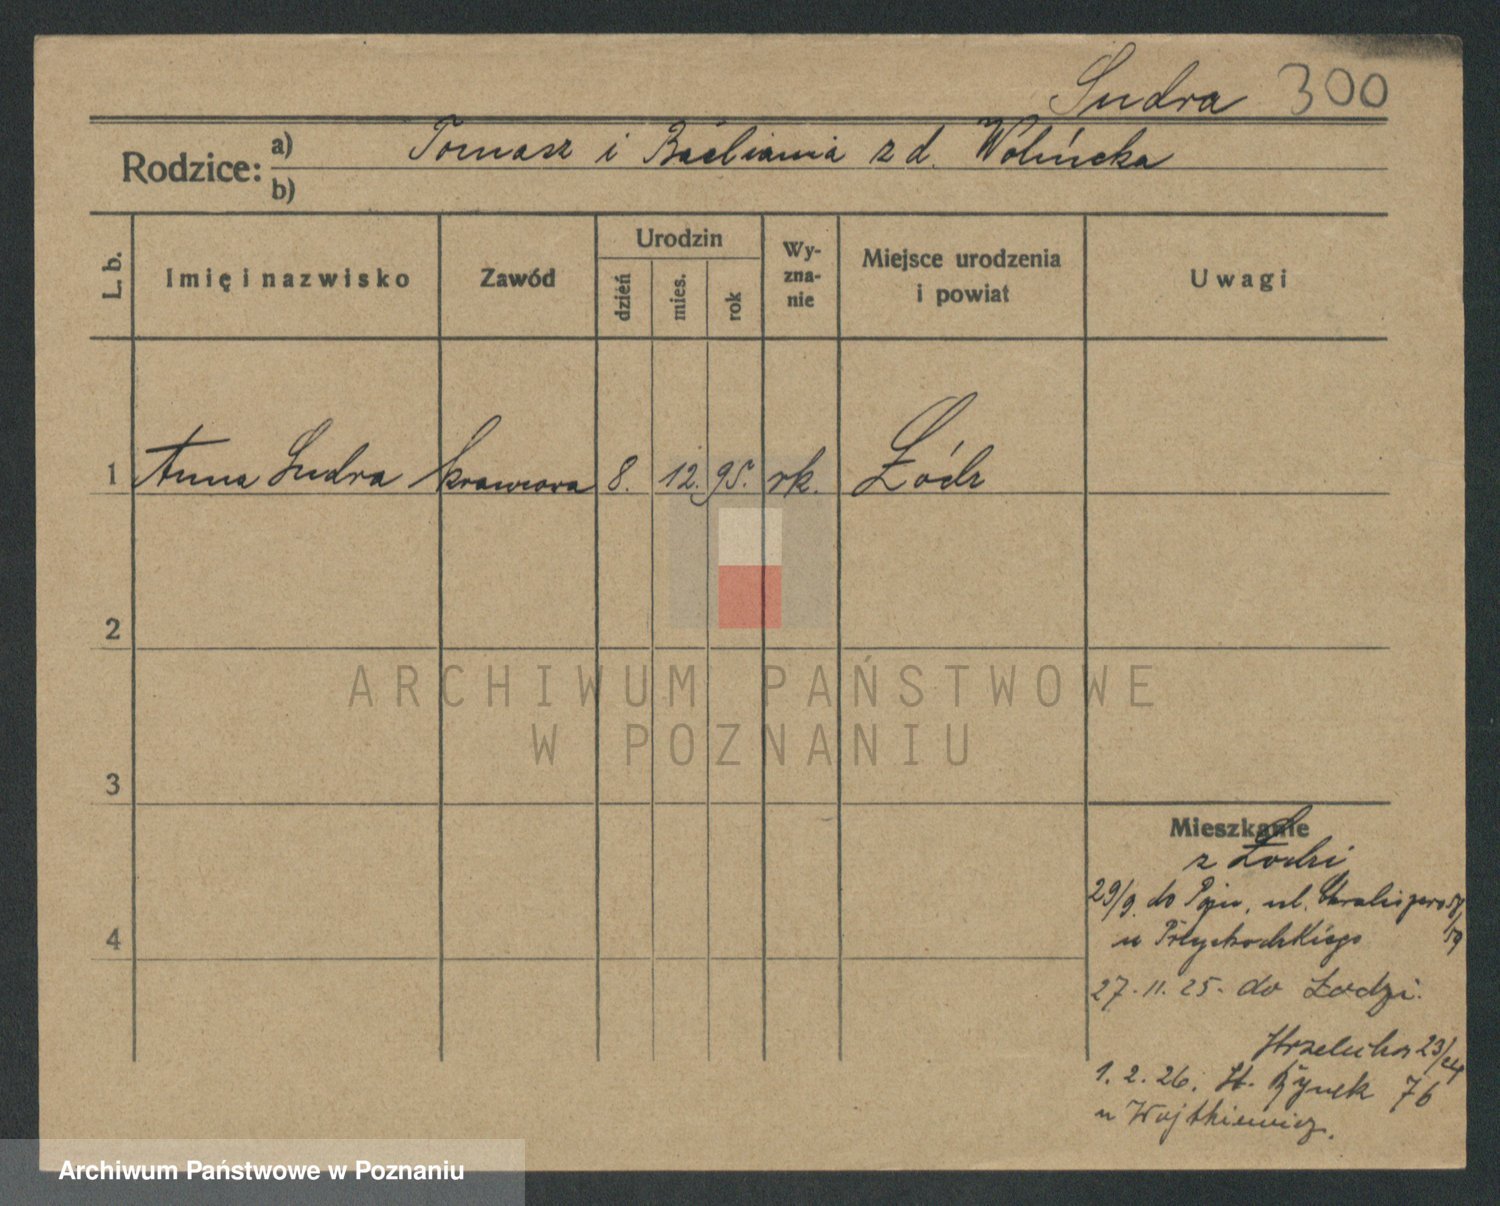 Sudra 300
Rodzice:
a) Tomasz i z d. Wolińska
b)
L. b.
Imię i nazwisko
Zawód
Urodzin
dzień
mies.
rok
Wy-
zna-
nie
Miejsce urodzenia
i powiat
Uwagi
1 Anna Sudra krawcowa 8. 12. 95. rk. Łódz
2
3
4
Mieszkanie
z Łodzi
29/9. do Pozn. ul.
u Przychodzkiego
27. 11. 25. do Łodzi.
23/24
1. 2. 26. St. Rynek 76
u Wojtkiewicz.
ARCHIWUM PAŃSTWOWE
W POZNANIU
Archiwum Państwowe w Poznaniu